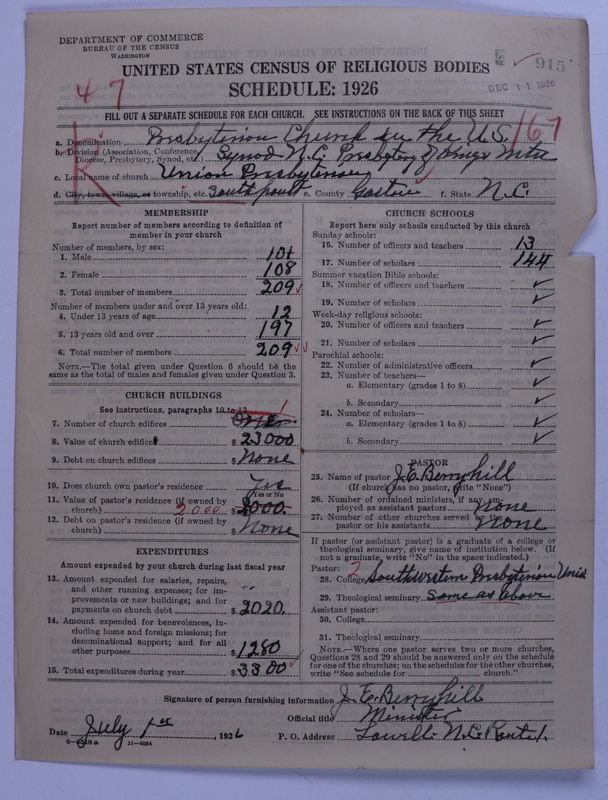 DEPARTMENT OF COMMERCE
BUREAU OF THE CENSUS
WASHINGTON
915
DEC 11 1926
UNITED STATES CENSUS OF RELIGIOUS BODIES
SCHEDULE: 1926
47
167
FILL OUT A SEPARATE SCHEDULE FOR EACH CHURCH. SEE INSTRUCTIONS ON THE BACK OF THIS SHEET
a. Denomination Presbyterian Church in the U.S.
b. Division (Association, Conference, Diocese, Presbytery, Synod, etc.) Synod N.C. Presbytery of Kings Mtn
c. Local name of church Union Presbyterian
d. City, town, village, or township, etc. South point e. County Gaston f. State N.C.
MEMBERSHIP
Report number of members according to definition of
member in your church
Number of members, by sex:
1. Male 101
2. Female 108
3. Total number of members 209
Number of members under and over 13 years old:
4. Under 13 years of age 12
5. 13 years old and over 197
6. Total number of members 209
NOTE.—The total given under Question 6 should be the
same as the total of males and females given under Question 3.
CHURCH BUILDINGS
See instructions, paragraphs 10 to 12
7. Number of church edifices 1
8. Value of church edifices $ 23000
9. Debt on church edifices $ None
10. Does church own pastor's residence? Yes
(Yes or No)
11. Value of pastor's residence (if owned by
church) 2000 $ 2000.
12. Debt on pastor's residence (if owned by
church) $ None
EXPENDITURES
Amount expended by your church during last fiscal year
13. Amount expended for salaries, repairs,
and other running expenses; for im-
provements or new buildings; and for
payments on church debt $ 2020.
14. Amount expended for benevolences, in-
cluding home and foreign missions; for
denominational support; and for all
other purposes $ 1280
15. Total expenditures during year $ 3300
CHURCH SCHOOLS
Report here only schools conducted by this church
Sunday schools:
16. Number of officers and teachers 13
17. Number of scholars 144
Summer vacation Bible schools:
18. Number of officers and teachers ✓
19. Number of scholars ✓
Week-day religious schools:
20. Number of officers and teachers ✓
21. Number of scholars ✓
Parochial schools:
22. Number of administrative officers ✓
23. Number of teachers—
a. Elementary (grades 1 to 8) ✓
b. Secondary ✓
24. Number of scholars—
a. Elementary (grades 1 to 8) ✓
b. Secondary ✓
PASTOR
25. Name of pastor J. E. Berryhill
(If church has no pastor, write "None")
26. Number of ordained ministers, if any, em-
ployed as assistant pastors none
27. Number of other churches served by the
pastor or his assistants None
If pastor (or assistant pastor) is a graduate of a college or
theological seminary, give name of institution below. (If
not a graduate, write "No" in the space indicated.)
Pastor:
28. College Southwestern Presbyterian Univ.
29. Theological seminary Same as above
Assistant pastor:
30. College
31. Theological seminary
NOTE.—Where one pastor serves two or more churches,
Questions 28 and 29 should be answered only on the schedule
for one of the churches; on the schedules for the other churches,
write "See schedule for church."
Signature of person furnishing information J. E. Berryhill
Official title Minister
Date July 1st, 1926 P. O. Address Lowell N.C. Route 1.
11—9054